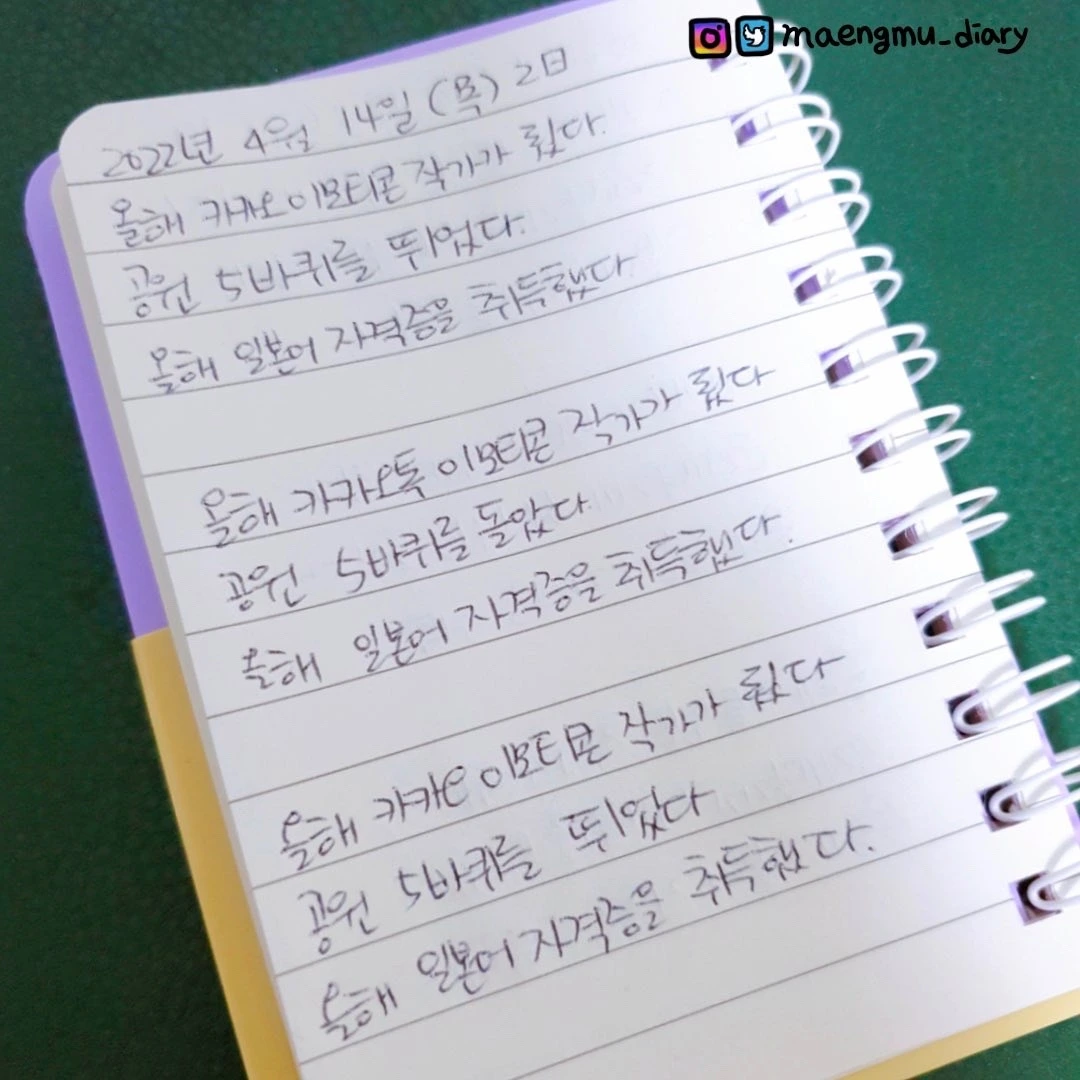 maengmu_diary
2022년 4월 14일 (목) 2日
올해 카카오 이모티콘 작가가 됬다.
공원 5바퀴를 뛰었다.
올해 일본어 자격증을 취득했다
올해 카카오톡 이모티콘 작가가 됬다
공원 5바퀴를 돌았다
올해 일본어 자격증을 취득했다.
올해 카카오 이모티콘 작가가 됬다
공원 5바퀴를 뛰었다
올해 일본어 자격증을 취득했다.